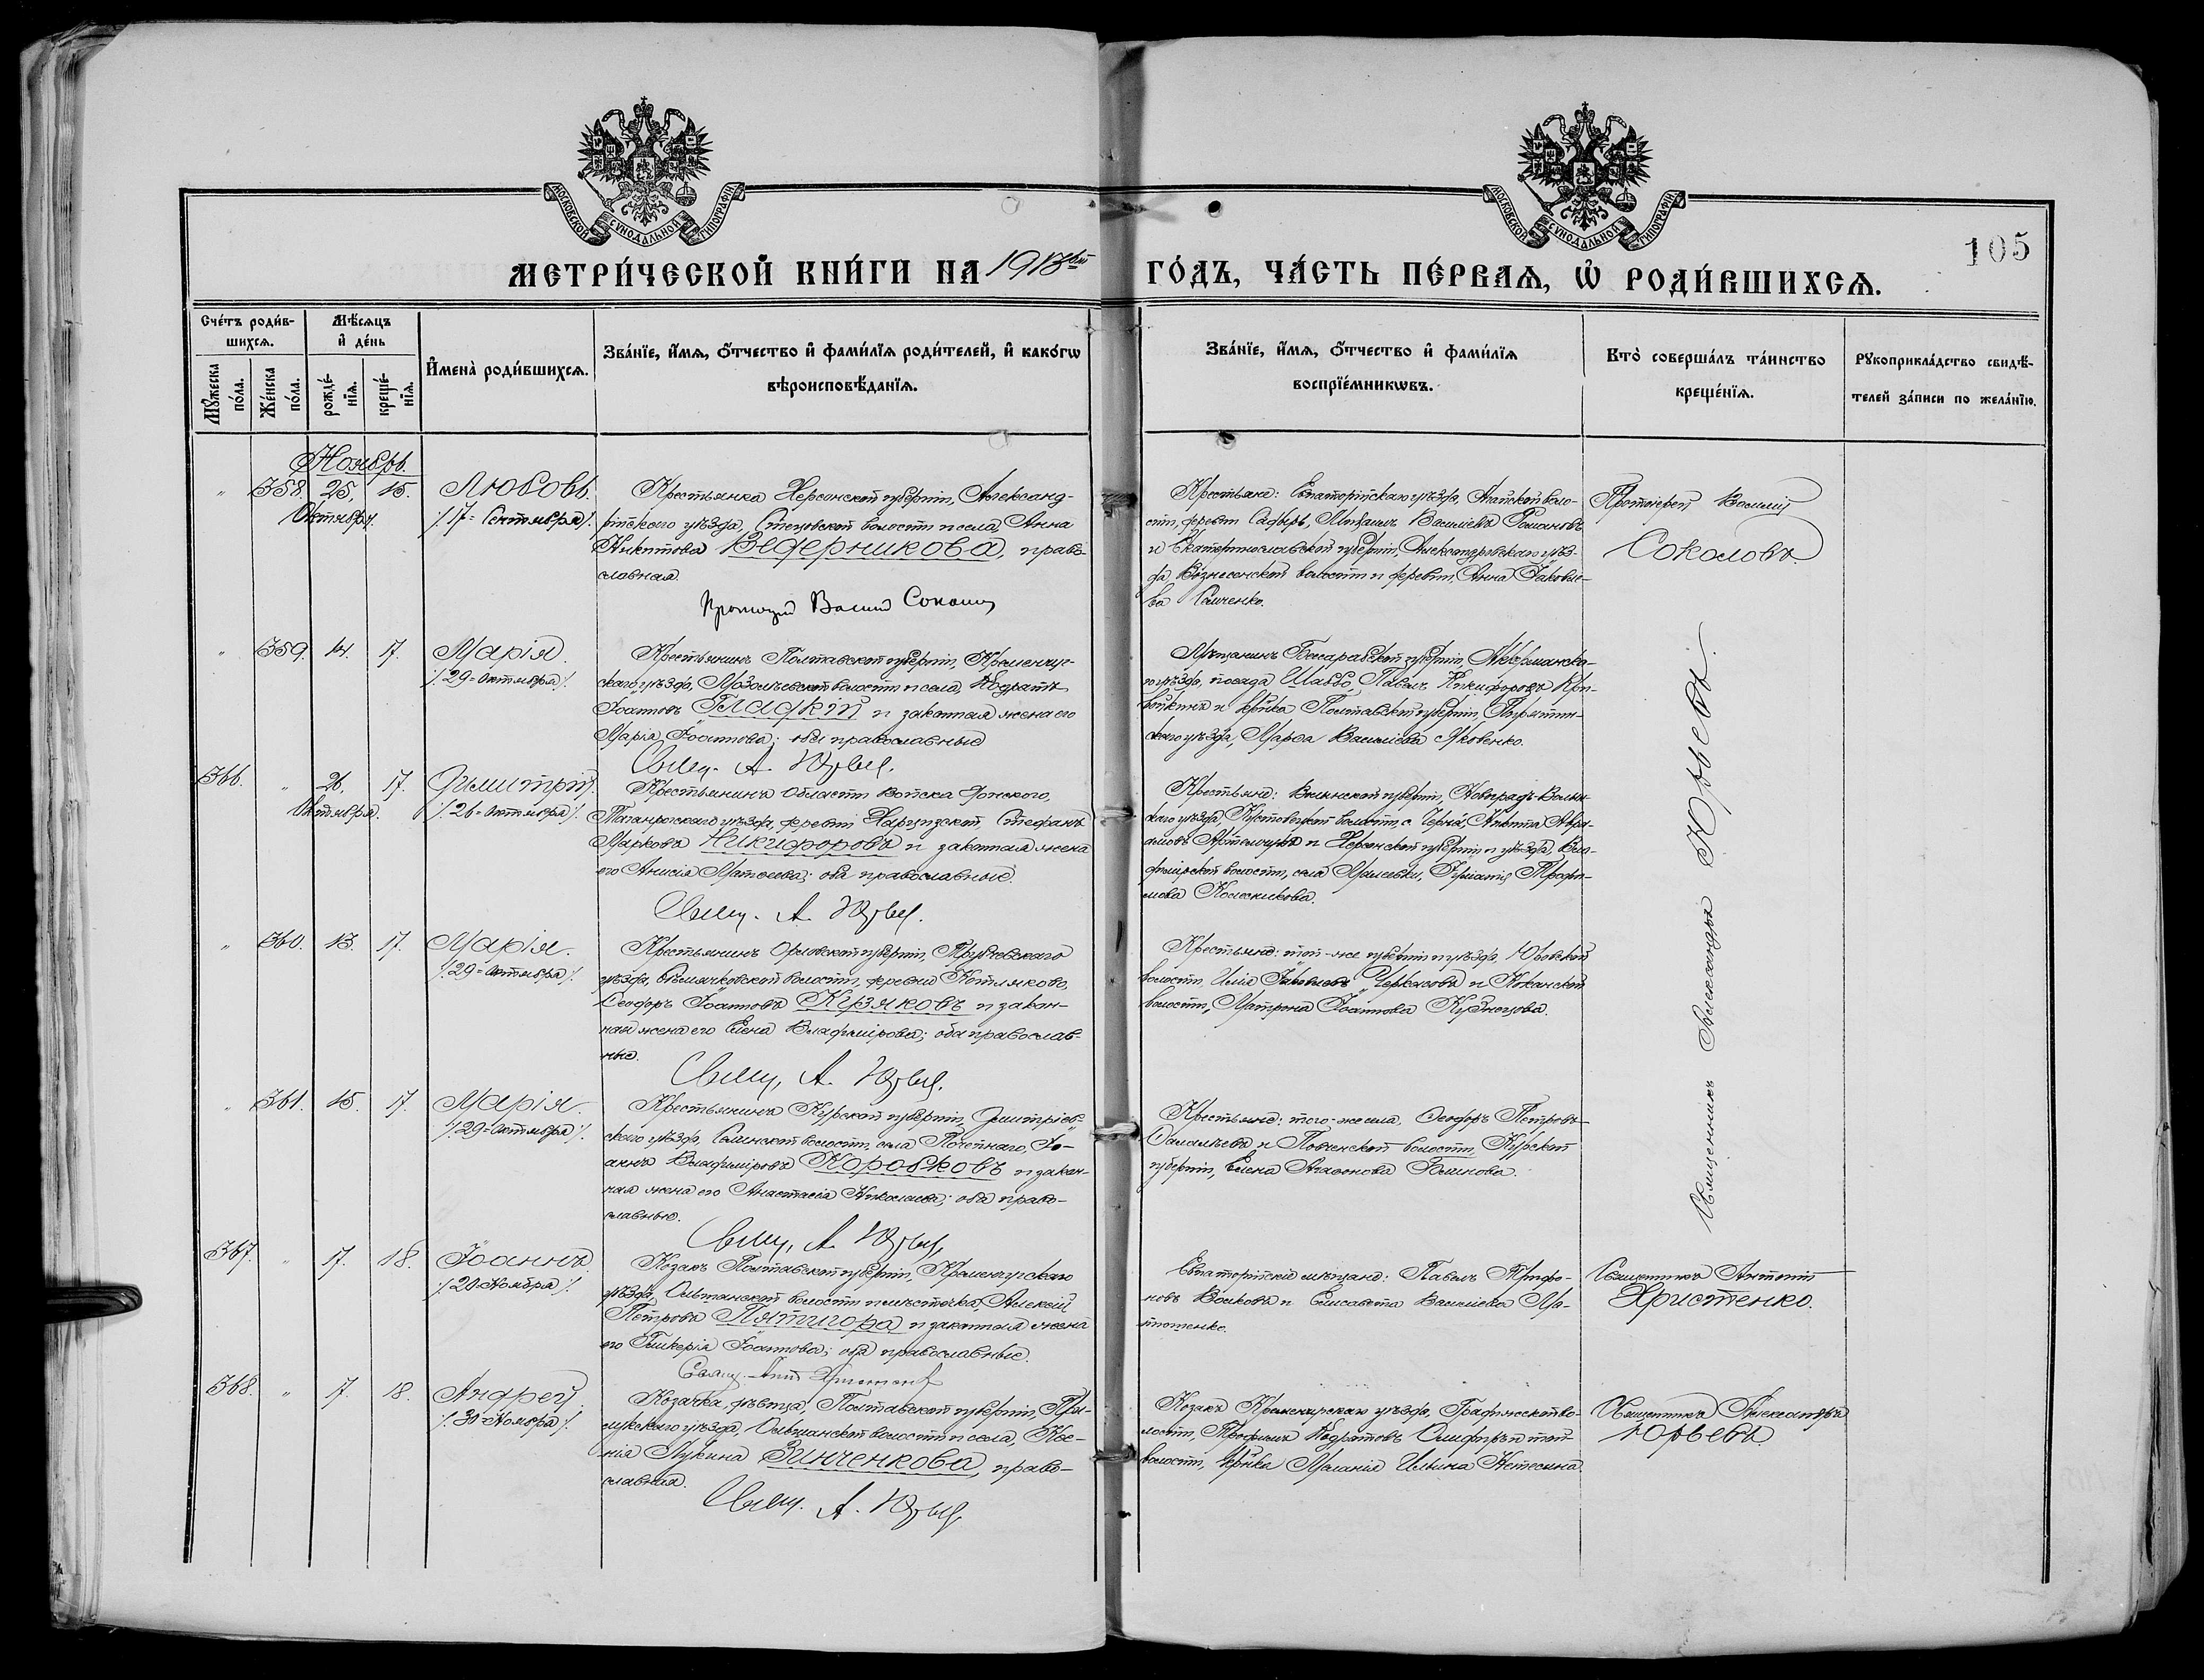 МОСКОВСКОЙ СѴНОДАЛЬНОЙ ТИПОГРАФІИ
МОСКОВСКОЙ СѴНОДАЛЬНОЙ ТИПОГРАФІИ
105
МЕТРИ́ЧЕСКОЙ КНИ́ГИ НА 1913ый ГО́ДЪ, ЧА́СТЬ ПЕ́РВАЯ, Ѡ РОДИ́ВШИХСЯ.
Сче́тъ роди́в-
шихся.
Мѣ́сяцъ
и де́нь
Мꙋжеска по́ла.
Же́нска по́ла.
рожде́-нїя.
креще́-нїя.
И҆мена̀ роди́вшихся.
Зва́нїе, и҆́мя, ѻ҆́тчество и҆ фами́лїя роди́телей, и҆ како́гѡ
вѣроисповѣ́данїя.
Зва́нїе, и҆́мя, ѻ҆́тчество и҆ фами́лїя
воспрїе́мникѡвъ.
Кто̀ соверша́лъ та́инство
креще́нїя.
Рꙋкоприкла́дство свидѣ́-
телей за́писи по жела́нїю.
Ноябрь.
" 358. 25. 15. Любовь.
Октября.
/17=Сентября/.
Крестьянка Херсонской губерніи, Александ-
рійского уѣзда, волости и села, Анна
Никитова Ведерникова, право-
славная.
Протоіерей Василій Соколовъ
Крестьяне: Евпаторійскаго уѣзда, воло-
сти, деревни Садыръ, Михаилъ Василіевъ Романовъ
и Екатеринославской губерніи, Александровскаго уѣз-
да Вознесенской волости и деревни, Анна Іаковле-
ва
Протоіерей Василій
Соколовъ.
" 359. 14. 17. Марія.
/29=Октября/.
Крестьянинъ Полтавской губерніи, Кременчуг-
скаго уѣзда, волости и села, Кодратъ
Іоанновъ Гладкій и законная жена его
Марія Іоаннова; оба православные
Свящ. А. Юрьев.
Мѣщанинъ Бессарабской губерніи, Аккерманска-
го уѣзда, посада Шабо, Павелъ Никифоровъ Кри-
войкинъ и дѣвка Полтавской губерніи, Пирятин-
скаго уѣзда, Марѳа Василіева Яковенко.
Священникъ Александръ Юрьевъ.
366. " 26. 17. Димитрій.
Октября.
/26=Октября/.
Крестьянинъ Области Войска Донского,
Таганрогскаго уѣзда, деревни Харцызской, Стефанъ
Марковъ Никифоровъ и законная жена
его Анисія Матѳеева; оба православные.
Свящ. А. Юрьев.
Крестьяне: Волынской губерніи, Новоградъ-Волын-
скаго уѣзда, волости, с. Черна, Никита Авра-
амовъ и Херсонской губерніи и уѣзда, Вла-
димірской волости, села Трофи-
мова Колесникова.
" 360. 13. 17. Марія.
/29=Октября/.
Крестьянинъ Орловской губерніи, Трубчевскаго
уѣзда, волости, деревни Котляково,
Ѳеодоръ Іоанновъ Кузяковъ и закон-
ная жена его Елена Владимірова; оба православ-
ные.
Свящ, А. Юрьев.
Крестьяне: той-же губерніи и уѣзда, Юбовской
волости, Илія Іаковлевъ Черкасовъ и
волости, Матрона Іоаннова Кузнецова.
" 361. 15. 17. Марія.
/29=Октября/.
Крестьянинъ Курской губерніи, Димитріев-
скаго уѣзда, волости, села Іо-
аннъ Владиміровъ Коробковъ и закон-
ная жена его Анастасія Николаева; оба право-
славные.
Свящ, А. Юрьев
Крестьяне: того-же села, Ѳеодоръ Петровъ
и волости, Курской
губерніи, Елена Агаѳонова Блинова.
367. " 17. 18. Іоаннъ.
/20 Ноября/.
Козакъ Полтавской губерніи, Кременчугскаго
уѣзда, волости и мѣстечка, Алексій
Петровъ Пятигора и законная жена
его Гликерія Іоаннова; оба православные.
Свящ. Ант. Христенко
Евпаторійскіе мѣщане: Павелъ Трифо-
новъ Волковъ и Елисавета Василіева Ма-
тюшенко.
Священникъ Антоній
Христенко.
368. " 7. 18. Андрей.
/30 Ноября/.
Козачка, дѣвица, Полтавской губерніи, При-
лукскаго уѣзда, Ольшанской волости и села, Ксе-
нія Лукина Зинченкова, право-
славная.
Свящ. А. Юрьев
Козакъ Кременчугскаго уѣзда, во-
лости, Трофимъ Кодратовъ и той-
волости, дѣвка Меланія Ильина
Священникъ Александръ
Юрьевъ.